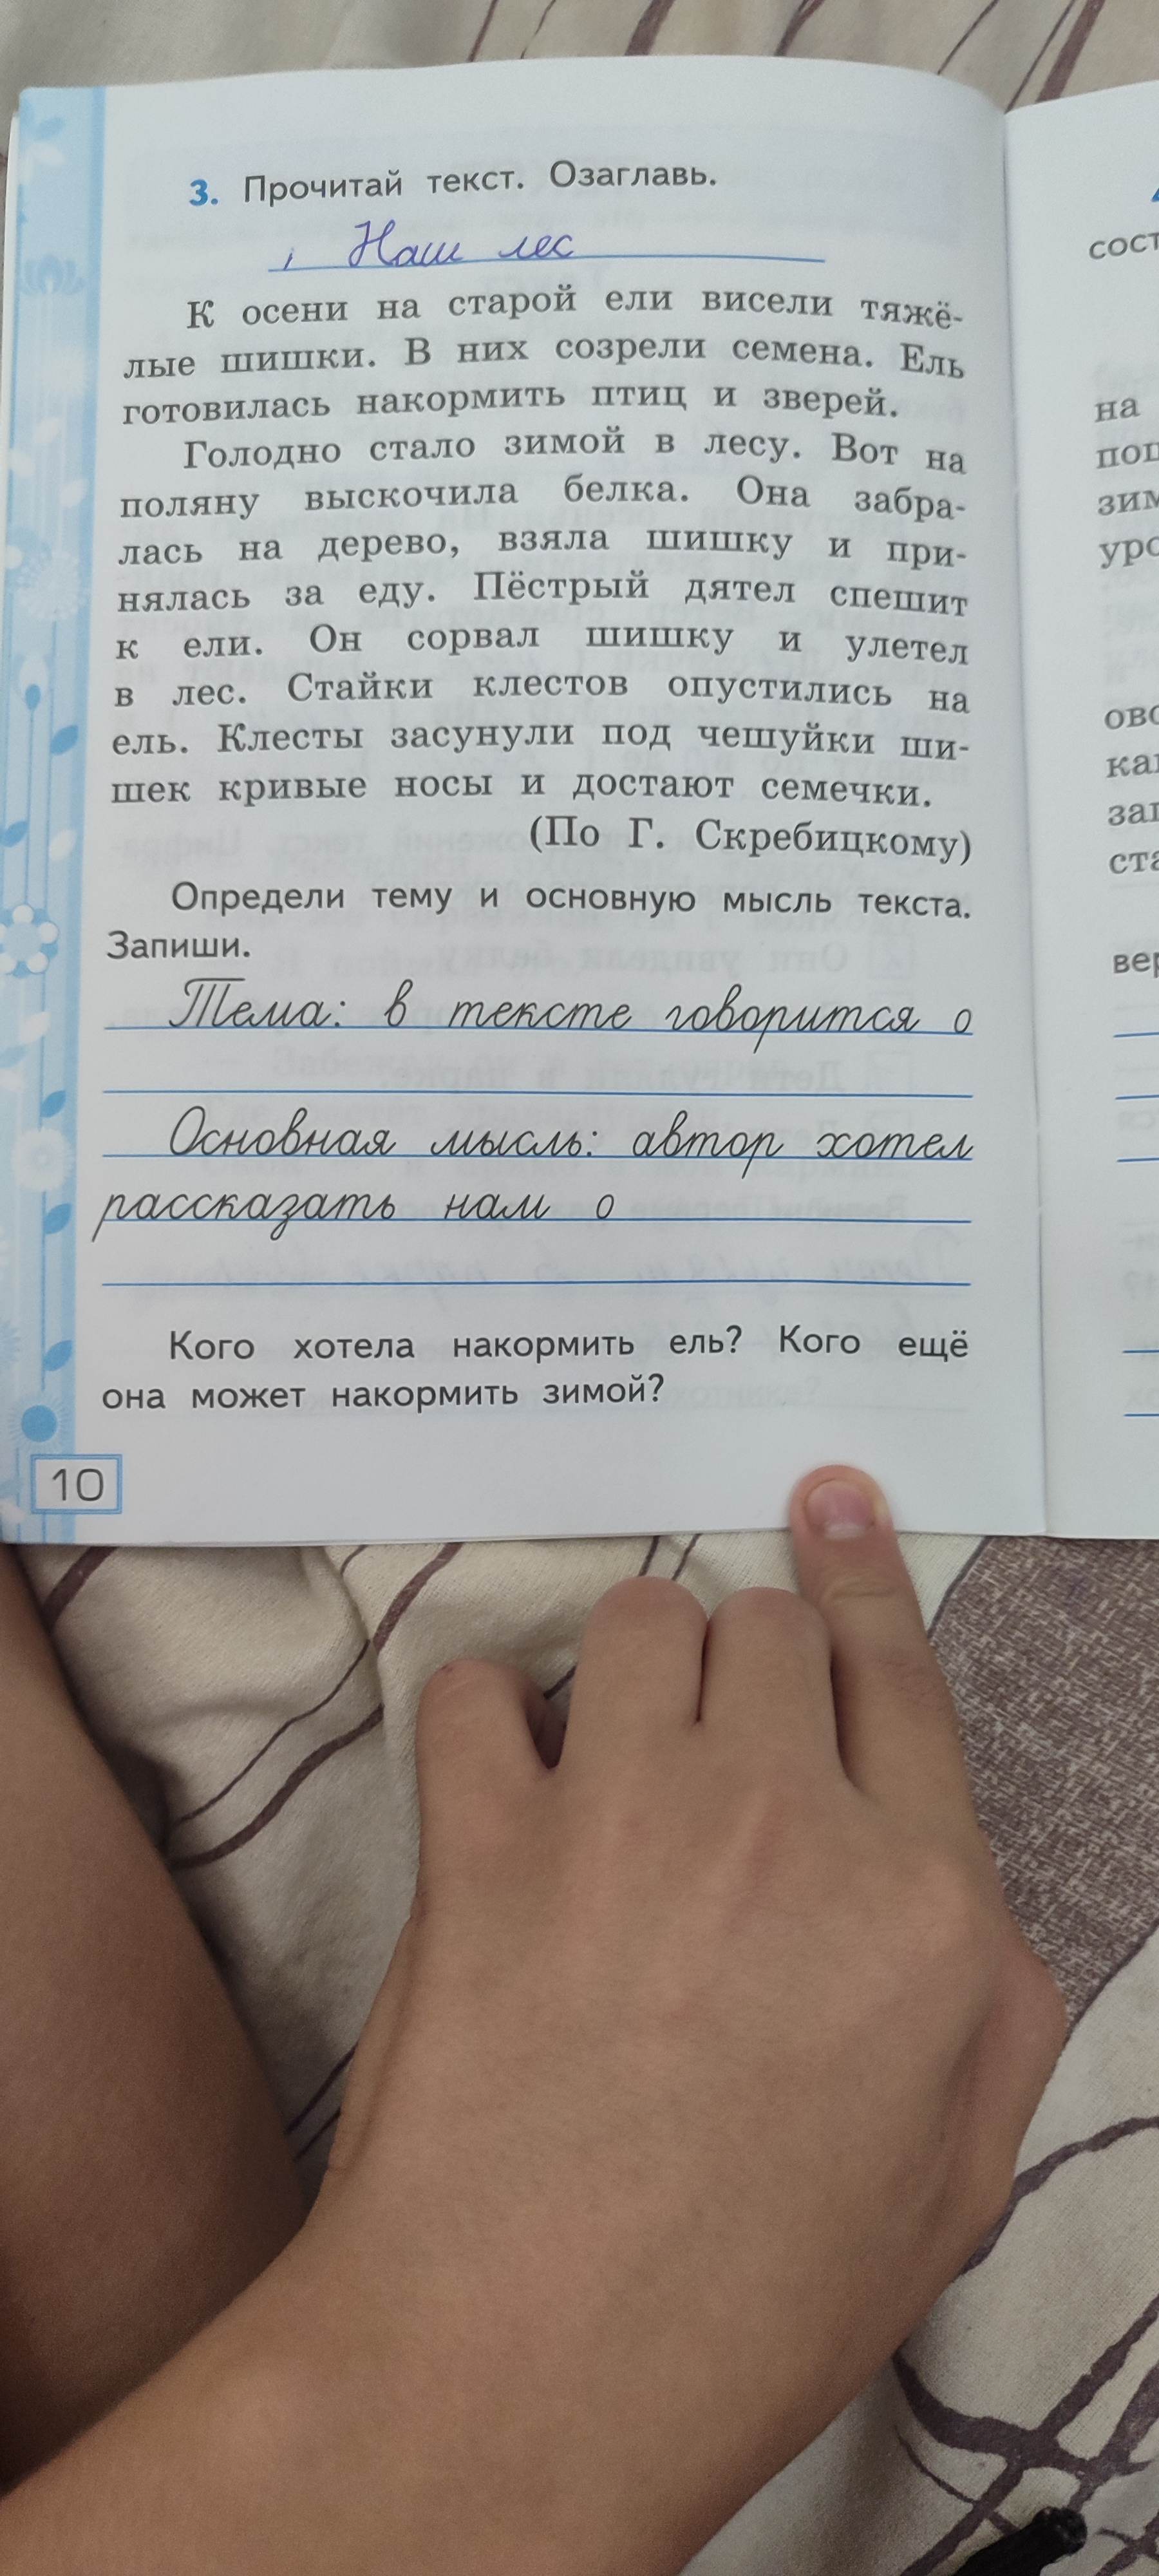 3. Прочитай текст. Озаглавь.
Наш лес
К осени на старой ели висели тяжё-
лые шишки. В них созрели семена. Ель
готовилась накормить птиц и зверей.
Голодно стало зимой в лесу. Вот на
поляну выскочила белка. Она забра-
лась на дерево, взяла шишку и при-
нялась за еду. Пёстрый дятел спешит
к ели. Он сорвал шишку и улетел
в лес. Стайки клестов опустились на
ель. Клесты засунули под чешуйки ши-
шек кривые носы и достают семечки.
(По Г. Скребицкому)
Определи тему и основную мысль текста.
Запиши.
Тема: в тексте говорится о
Основная мысль: автор хотел
рассказать нам о
Кого хотела накормить ель? Кого ещё
она может накормить зимой?
10
на